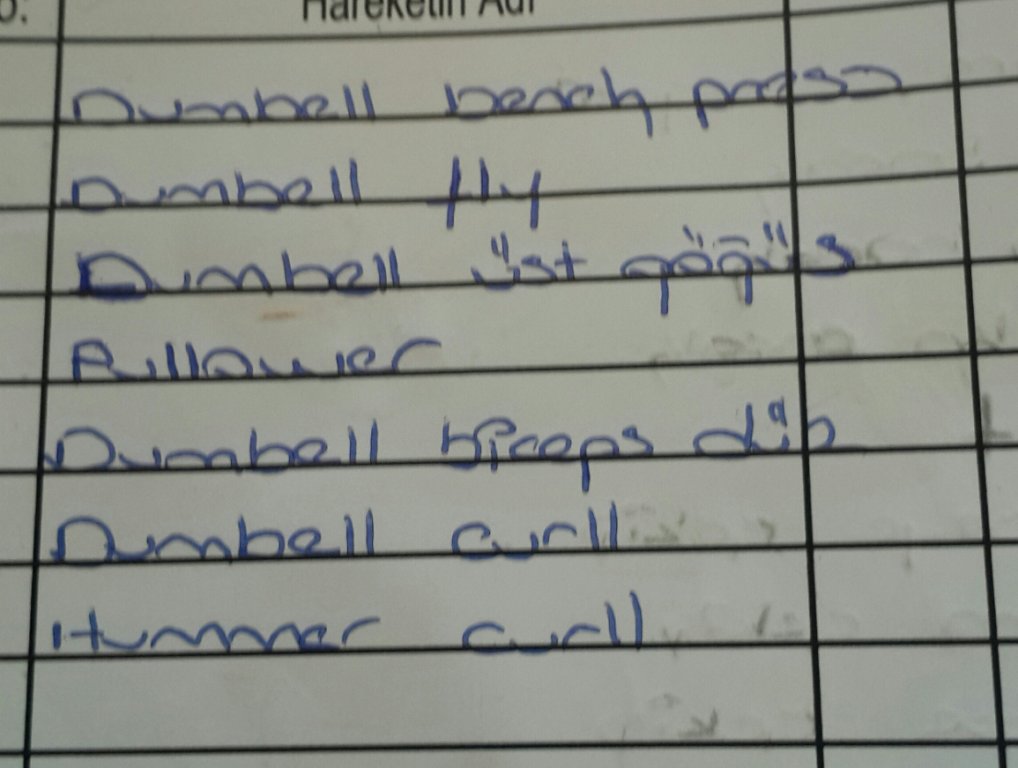 Hareketin Adı
Dumbell bench press
Dumbell fly
Dumbell üst göğüs
Pullower
Dumbell biceps
Dumbell curll
Hummer curll